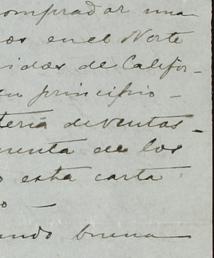 comprador una
os en el Norte
nidos de Califor-
su principio -
teria de ventas -
uenta de los
o esta carta
o -
ando buena